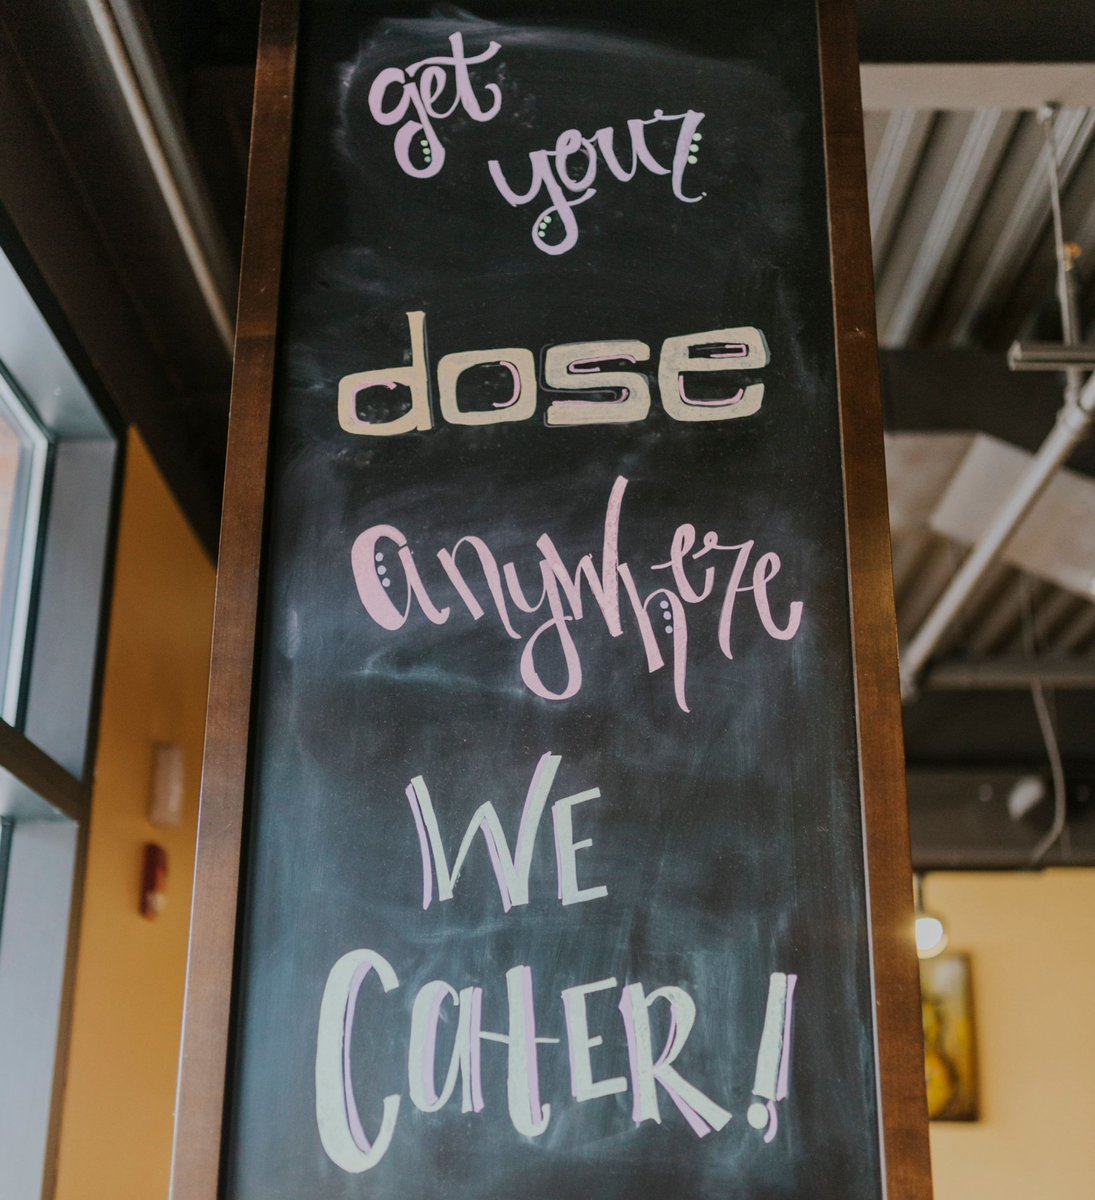 get
your
dose
anywhere
WE
CaTER!